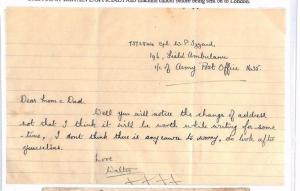 before being sent on to London.
Cpl. W. P. Izzard
196, Field Ambulance
c/o Army Post Office No 35.
Dear Mom & Dad
Well you will notice the change of address
not that I think it will be worth while writing for some
-time, I don't think there is any cause to worry, so look after
yourselves.
Love
Walter
xxxx